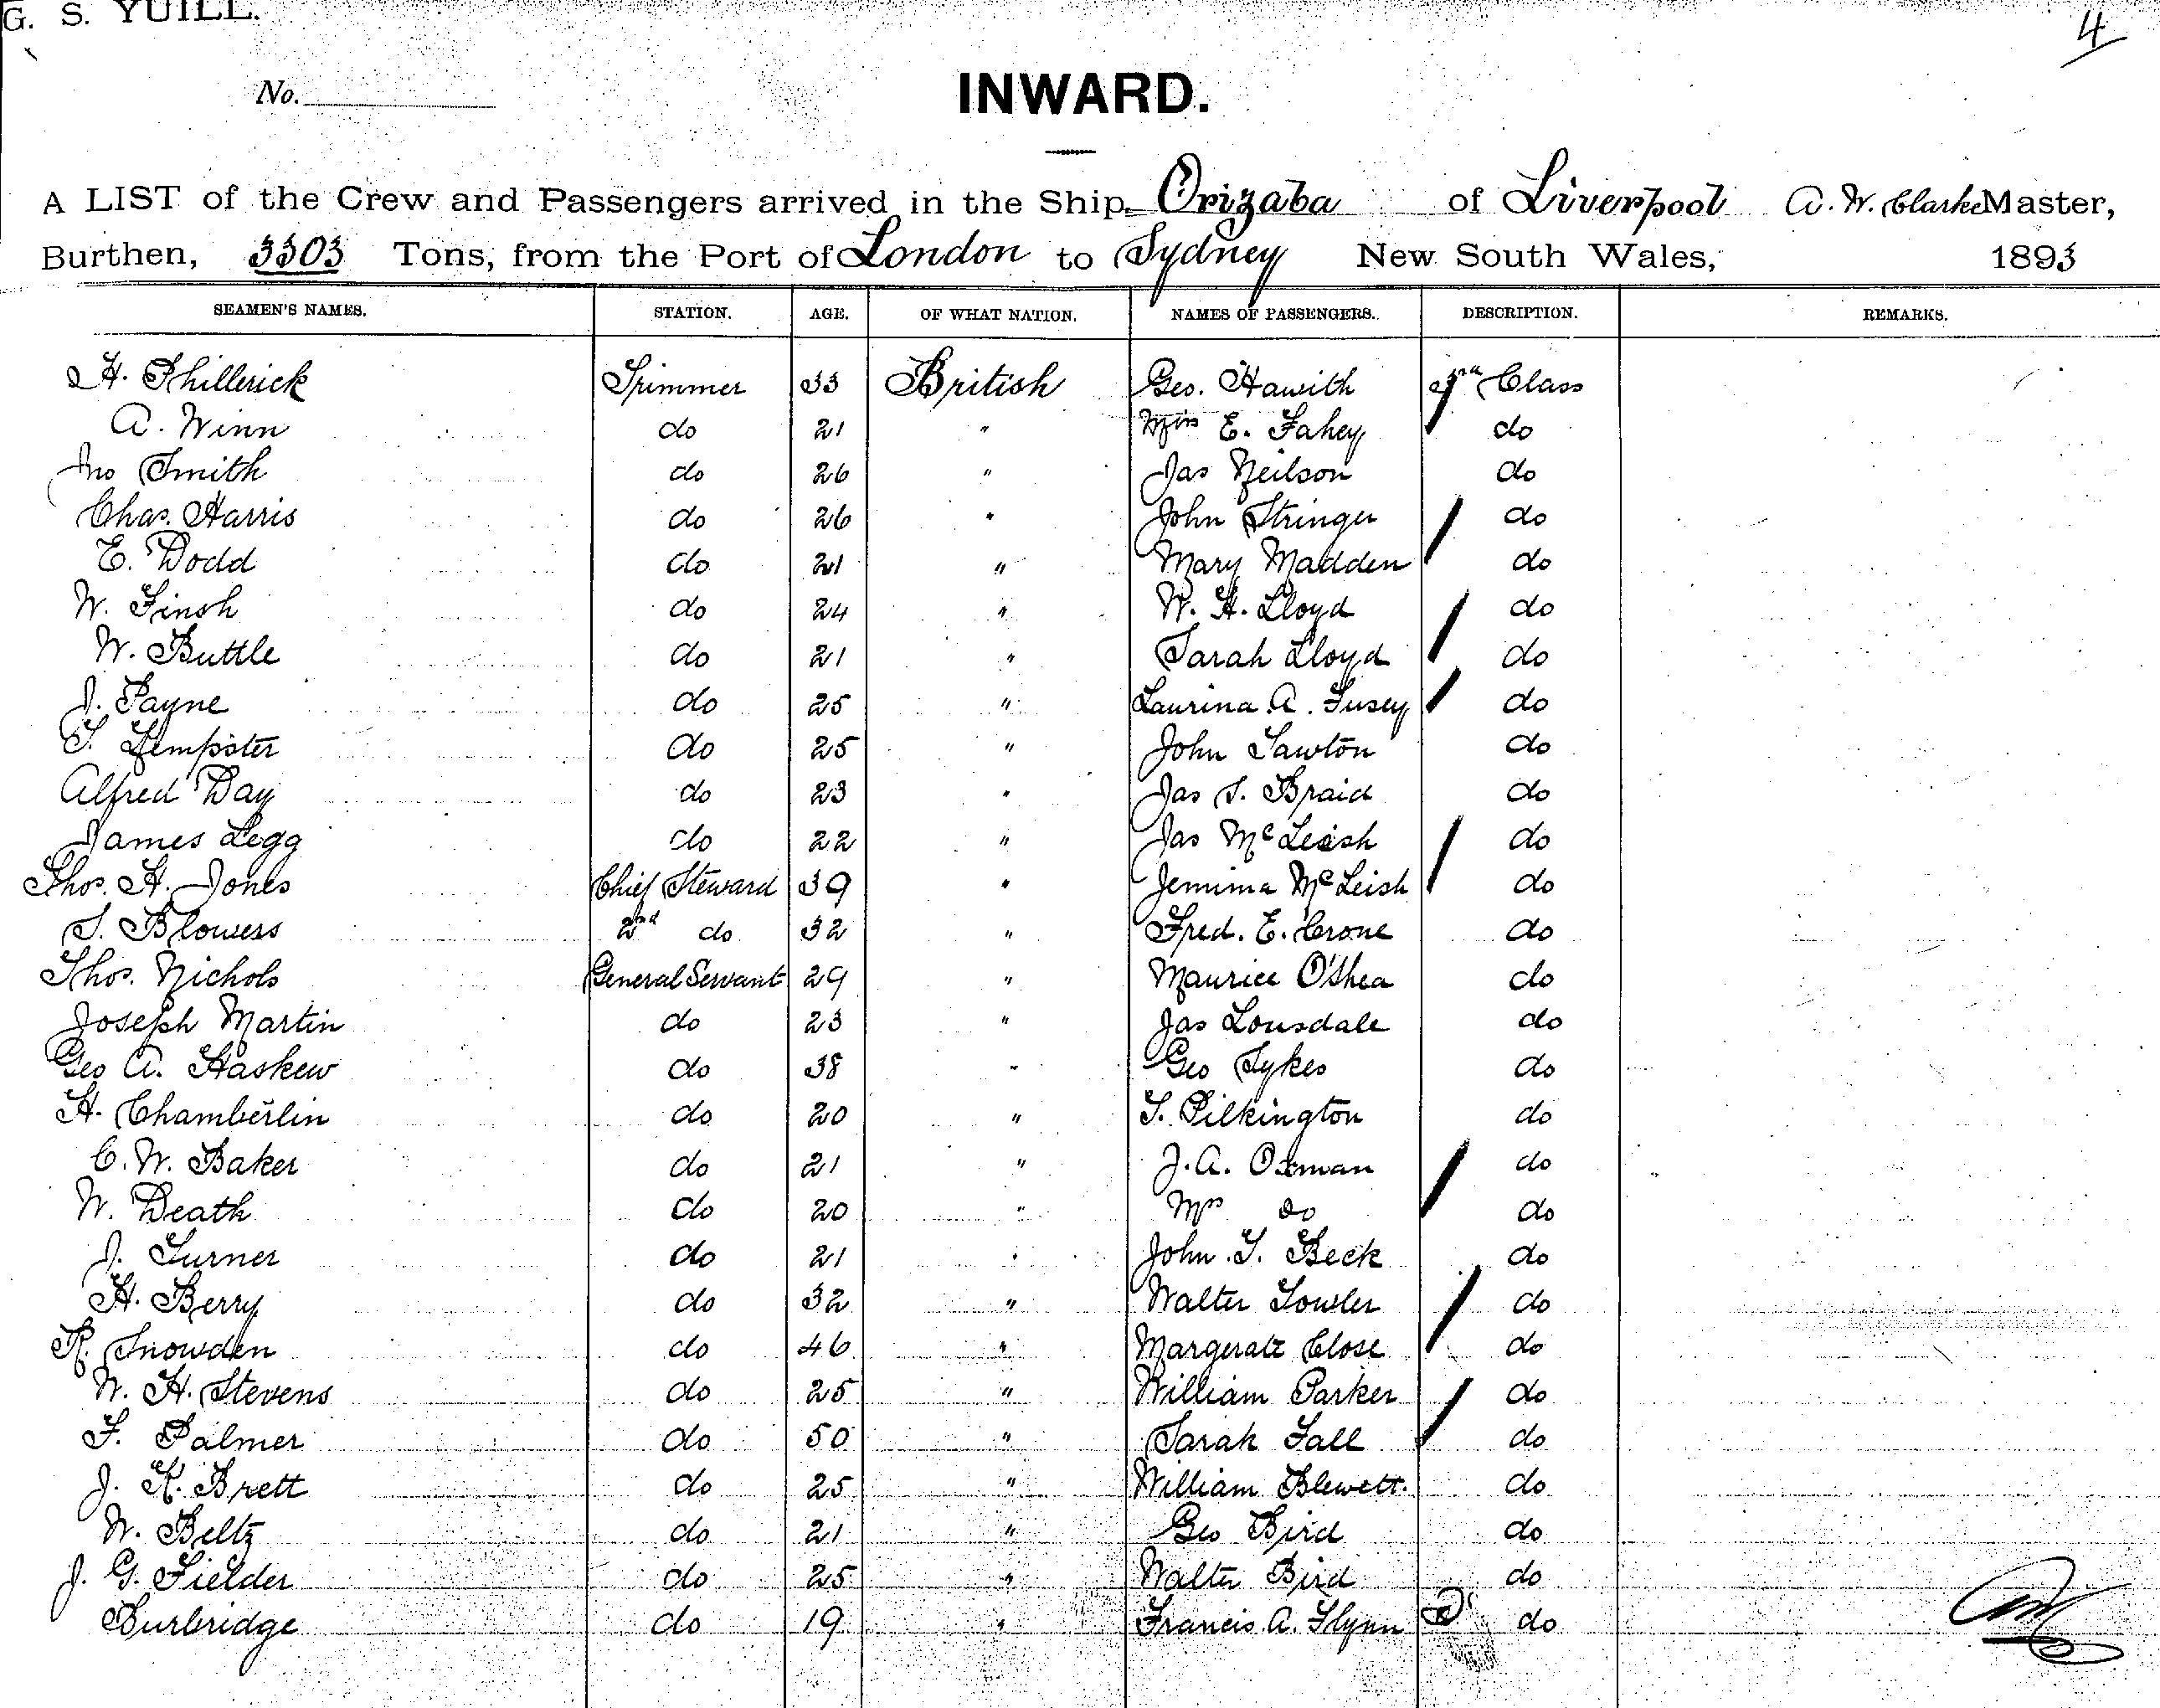 G. S. YUILL.
4
No.
INWARD.
A LIST of the Crew and Passengers arrived in the Ship Orizaba of Liverpool A. W. Clarke Master,
Burthen, 3303 Tons, from the Port of London to Sydney New South Wales, 1893
SEAMEN'S NAMES. STATION. AGE. OF WHAT NATION. NAMES OF PASSENGERS. DESCRIPTION. REMARKS.
H. Phillerick Trimmer 33 British Geo. Hawith Class
A. Winn do 21 " E. Fahey do
Jno Smith do 26 " Jas Neilson do
Chas. Harris do 26 " John Stringer do
E. Dodd do 21 " Mary Madden do
W. Finsh do 24 " W. H. Lloyd do
W. Buttle do 21 " Sarah Lloyd do
J. Payne do 25 " Laurina A. Fusey do
T. do 25 " John Lawton do
Alfred Day do 23 " Jas S. Braid do
James Legg do 22 " Jas McLeish do
Thos. H. Jones Chief Steward 39 " Jemima McLeish do
S. Blowers 2nd do 32 " Fred. E. Crone do
Thos. Nichols General Servant 29 " Maurice O'Shea do
Joseph Martin do 23 " Jas Lonsdale do
Geo A. Haskew do 38 " Geo Sykes do
H. Chamberlin do 20 " T. Pilkington do
C. W. Baker do 21 " J. A. Oxman do
W. Death do 20 " Mrs do do
J. Turner do 21 " John T. Beck do
H. Berry do 32 " Walter Fowler do
R. Snowden do 46 " Margerate Close do
W. H. Stevens do 25 " William Parker do
F. Palmer do 50 " Sarah Fall do
J. R. Brett do 25 " William Blewett. do
W. Beltz do 21 " Geo Bird do
J. G. Fielder do 25 " Walter Bird do
Burbridge do 19 " Francis A. Flynn do